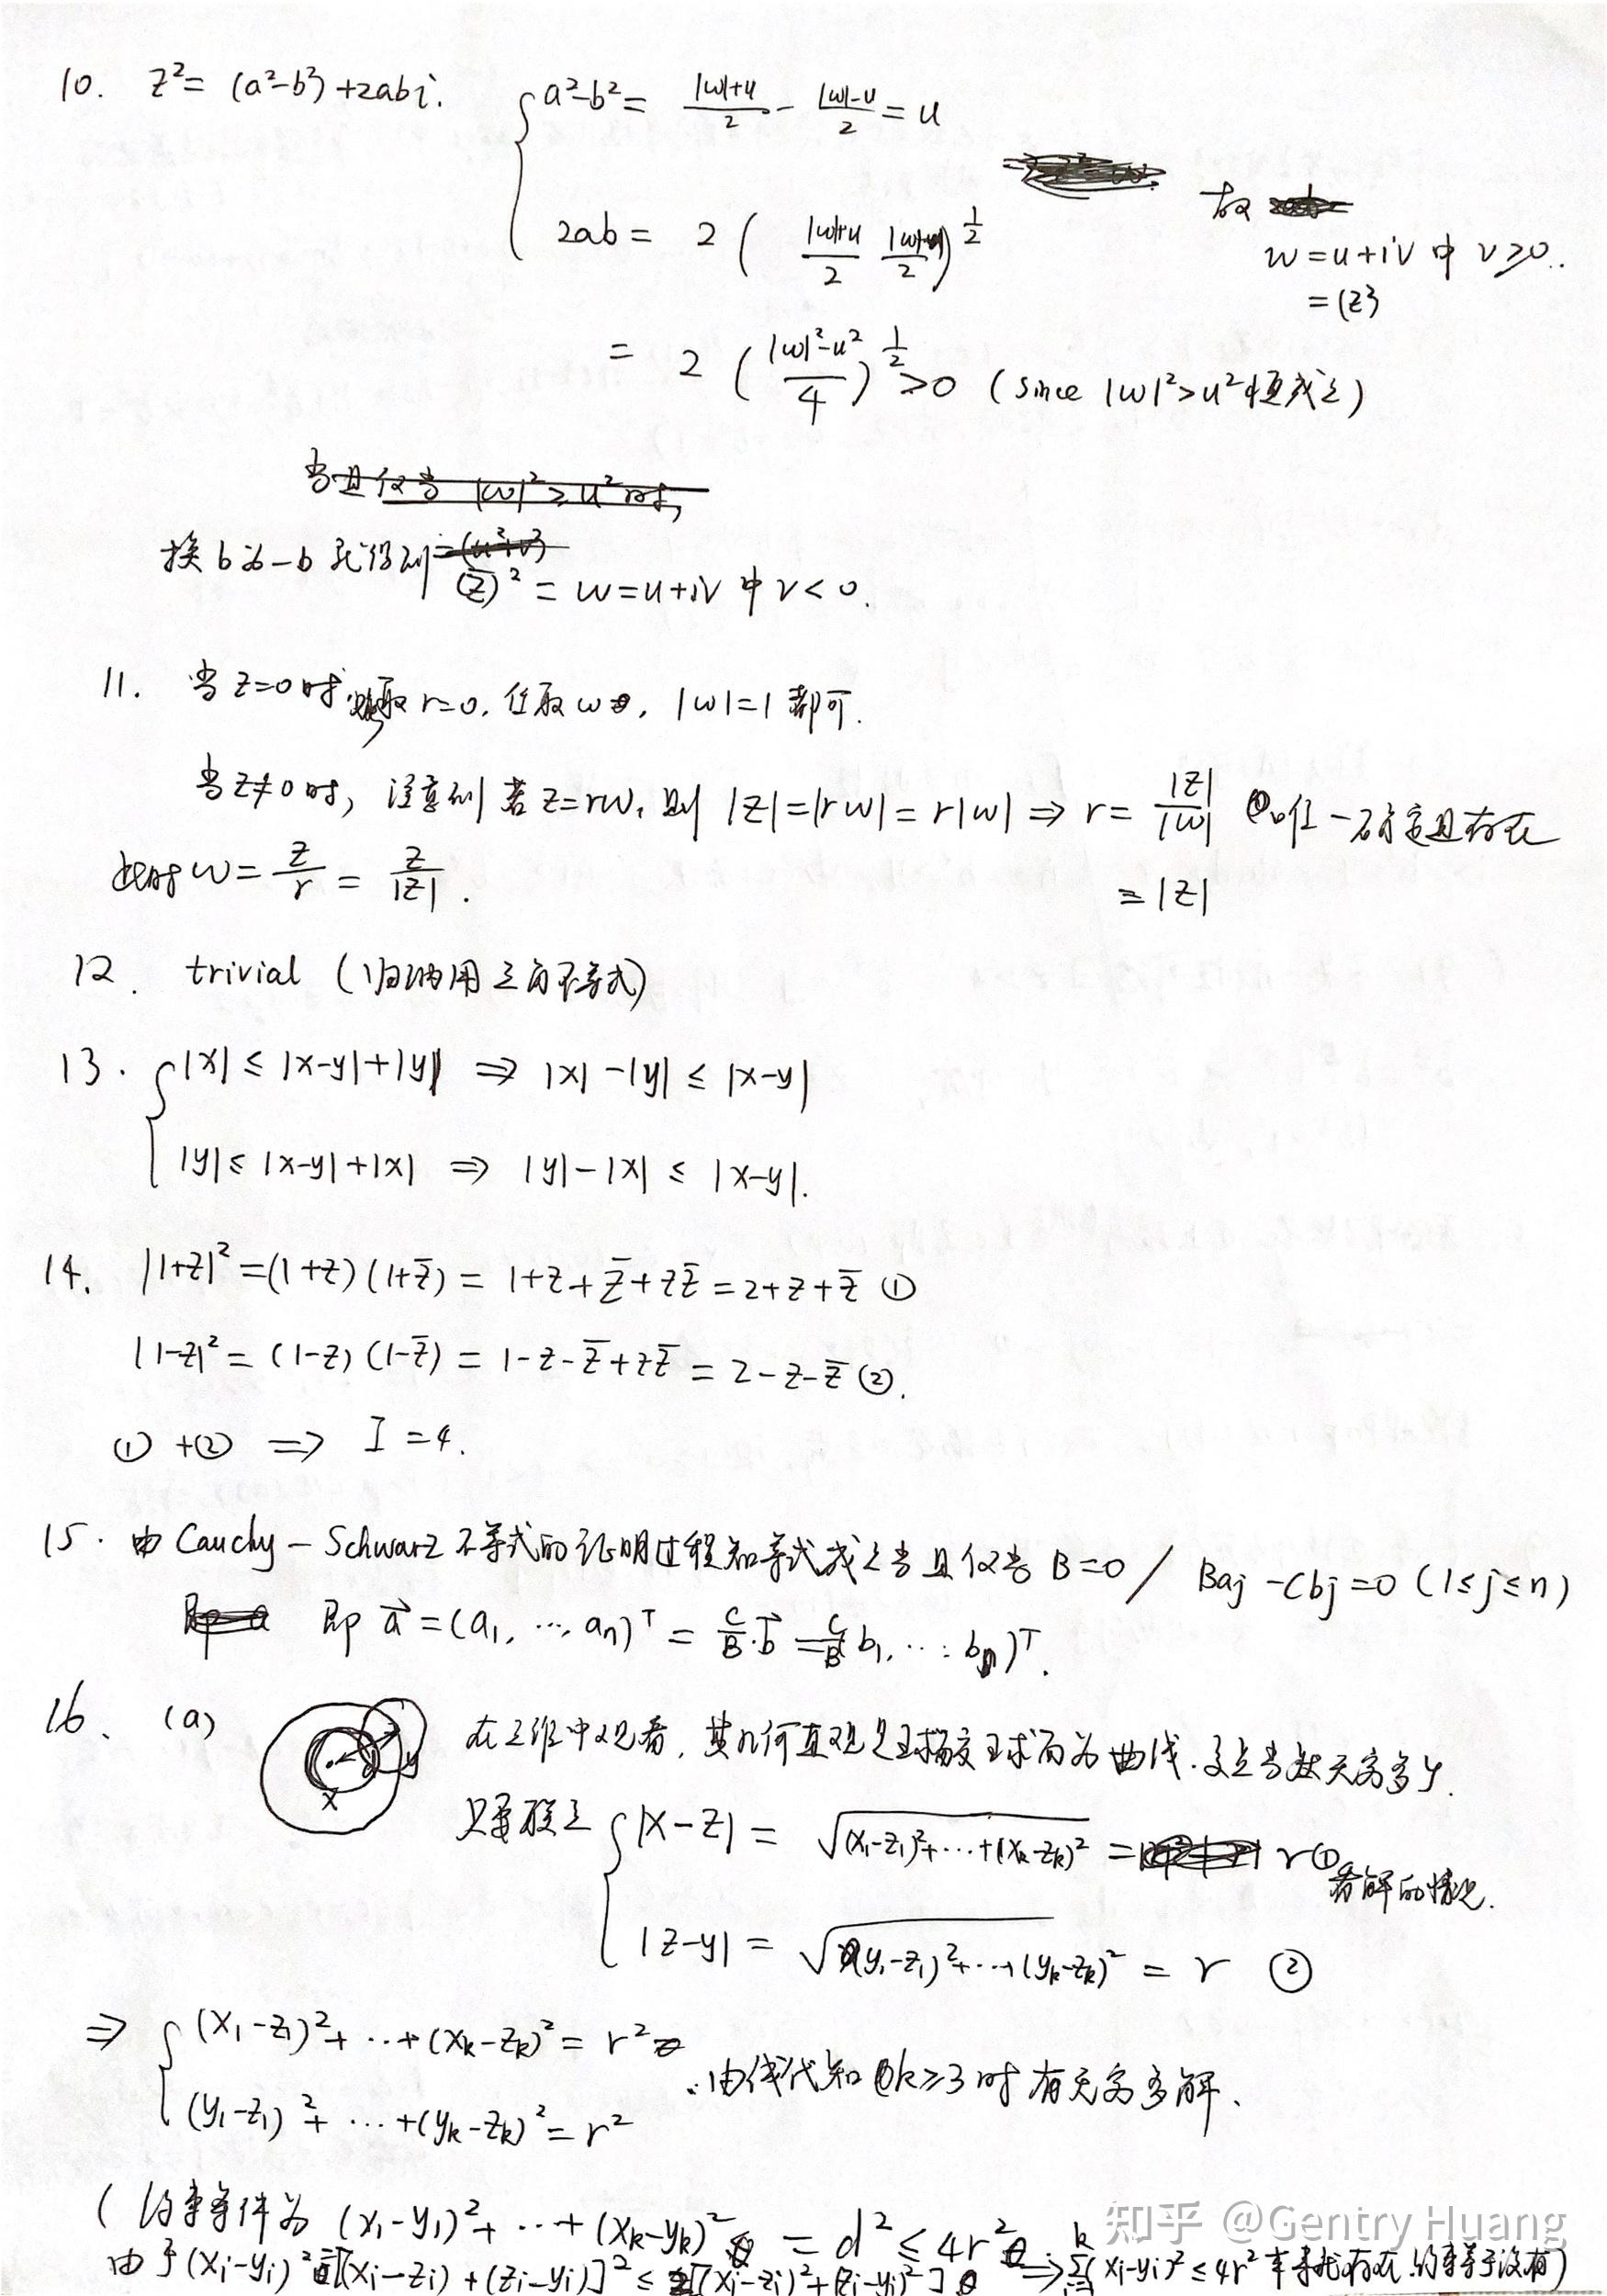 10. z²= (a²-b²)+2abi.
a²-b²= (|w|+u)/2 - (|w|-u)/2 = u
2ab = 2 ( (|w|+u)/2 (|w|-u)/2 )^(1/2)
故
w = u+iv 中 v≥0.
= (z²)
= 2 ( (|w|²-u²)/4 )^(1/2) >0 (since |w|²>u² 恒成立)
当且仅当 |w|²≥u² 时,
换 b 为 -b 就得到
(z̄)² = w=u+iv 中 v<0.
11. 当 z=0 时 取 r=0, 任取 w, |w|=1 都可.
当 z≠0 时, 注意到 若 z=rw, 则 |z|=|rw|=r|w| ⇒ r= |z|/|w| 唯一确定且存在
= |z|
此时 w= z/r = z/|z| .
12. trivial (归纳用三角不等式)
13. |x| ≤ |x-y|+|y| ⇒ |x|-|y| ≤ |x-y|
|y| ≤ |x-y|+|x| ⇒ |y|-|x| ≤ |x-y|.
14. |1+z|²=(1+z)(1+z̄) = 1+z+z̄+zz̄=2+z+z̄ ①
|1-z|²=(1-z)(1-z̄) = 1-z-z̄+zz̄ = 2-z-z̄ ②.
①+② ⇒ I=4.
15. 由 Cauchy-Schwarz 不等式的证明过程知等式成立当且仅当 B=0 / Baj-Cbj=0 (1≤j≤n)
即 a⃗=(a₁, …, aₙ)ᵀ = C/B·b⃗ = C/B b₁, … bₙ)ᵀ.
16. (a)
x
y
在三维中观看, 其几何直观是球面交球面为曲线. 交点当然无穷多个.
只要联立 |x-z| = √((x₁-z₁)²+…+(xk-zk)²) = r ①
看解的情况.
|z-y| = √((y₁-z₁)²+…+(yk-zk)²) = r ②
⇒ (x₁-z₁)²+…+(xk-zk)² = r²
(y₁-z₁)²+…+(yk-zk)²=r²
. 由线代知 k≥3 时 有无穷多解.
( 约束条件为 (x₁-y₁)²+…+(xk-yk)² = d² ≤ 4r²
由于 (xi-yi)² = [(xi-zi)+(zi-yi)]² ≤ 2[(xi-zi)²+(zi-yi)²] ⇒ Σ(i=1..k)(xi-yi)² ≤ 4r²
知乎 @Gentry Huang